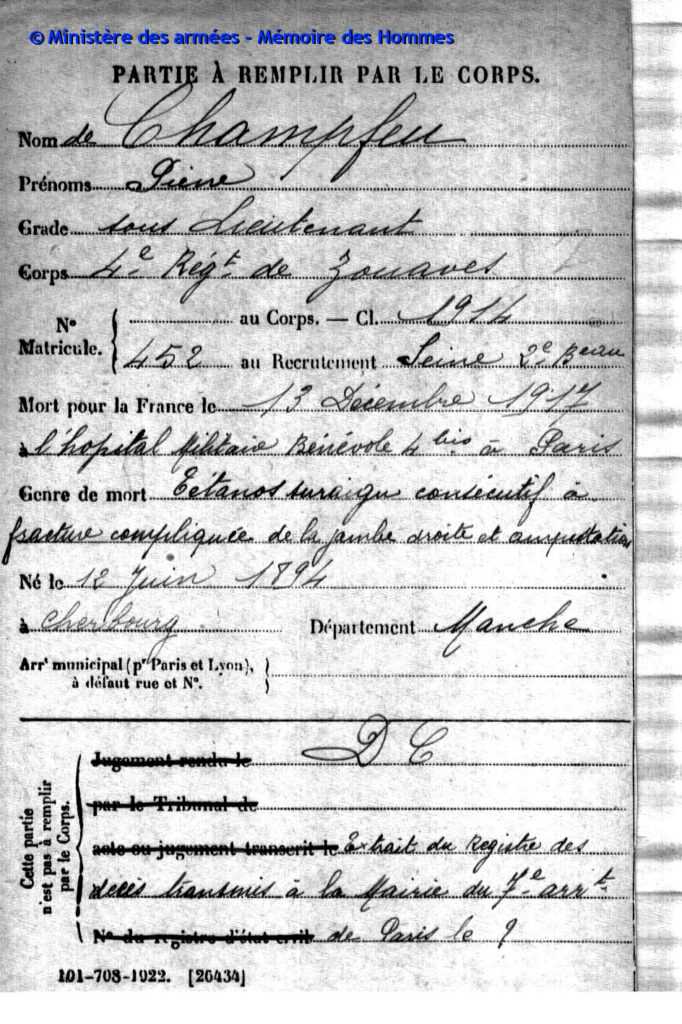 © Ministère des armées - Mémoire des Hommes
PARTIE À REMPLIR PAR LE CORPS.
Nom de Champfeu
Prénoms Pierre
Grade sous Lieutenant
Corps 4e Régt de Zouaves
N° Matricule. { au Corps. — Cl. 1914
452 au Recrutement Seine 2e Beau
Mort pour la France le 13 Décembre 1917
à l'hopital Militaire Bénévole 4 bis à Paris
Genre de mort Tétanos suraigu consécutif à
fracture compliquée de la jambe droite et amputation
Né le 12 Juin 1894
à Cherbourg Département Manche
Arrt municipal (pr Paris et Lyon),
à défaut rue et N°. }
Cette partie n'est pas à remplir par le Corps.
Jugement rendu le D C
par le Tribunal de
acte ou jugement transcrit le Extrait du Registre des
décès transmis à la Mairie du 7e arrt
N° du registre d'état civil de Paris le ?
101-708-1922. [26434]